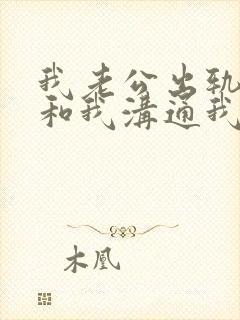 我老公出轨
和我溝通我
木凰